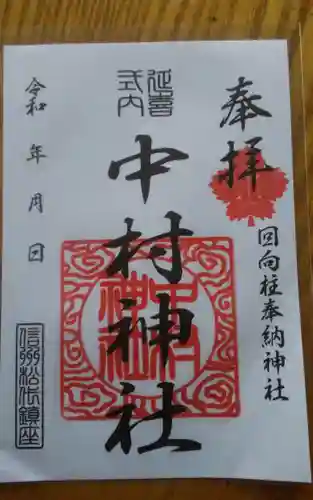 奉拝
回向柱奉納神社
延喜
式内
中村神社
令和 年 月 日
信州松代鎮座